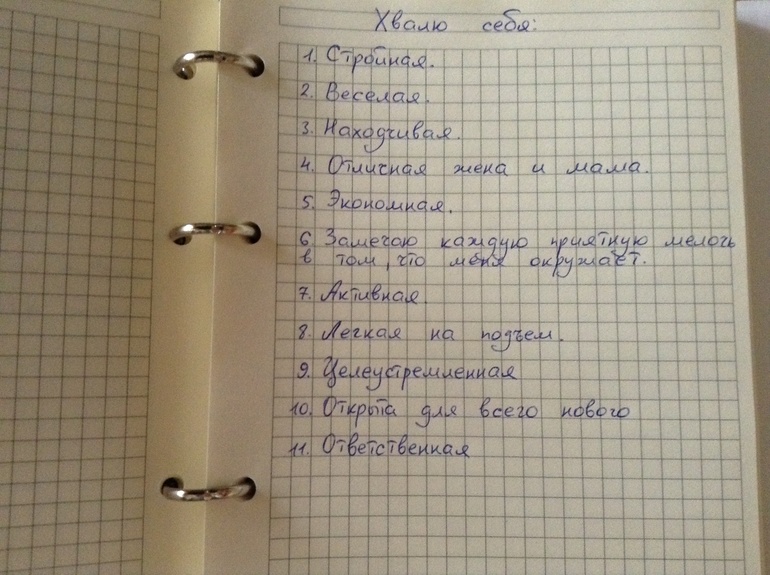 Хвалю себя:
1. Стройная.
2. Веселая.
3. Находчивая.
4. Отличная жена и мама.
5. Экономная.
6. Замечаю каждую приятную мелочь
в том, что меня окружает.
7. Активная.
8. Легкая на подъем.
9. Целеустремленная
10. Открыта для всего нового
11. Ответственная